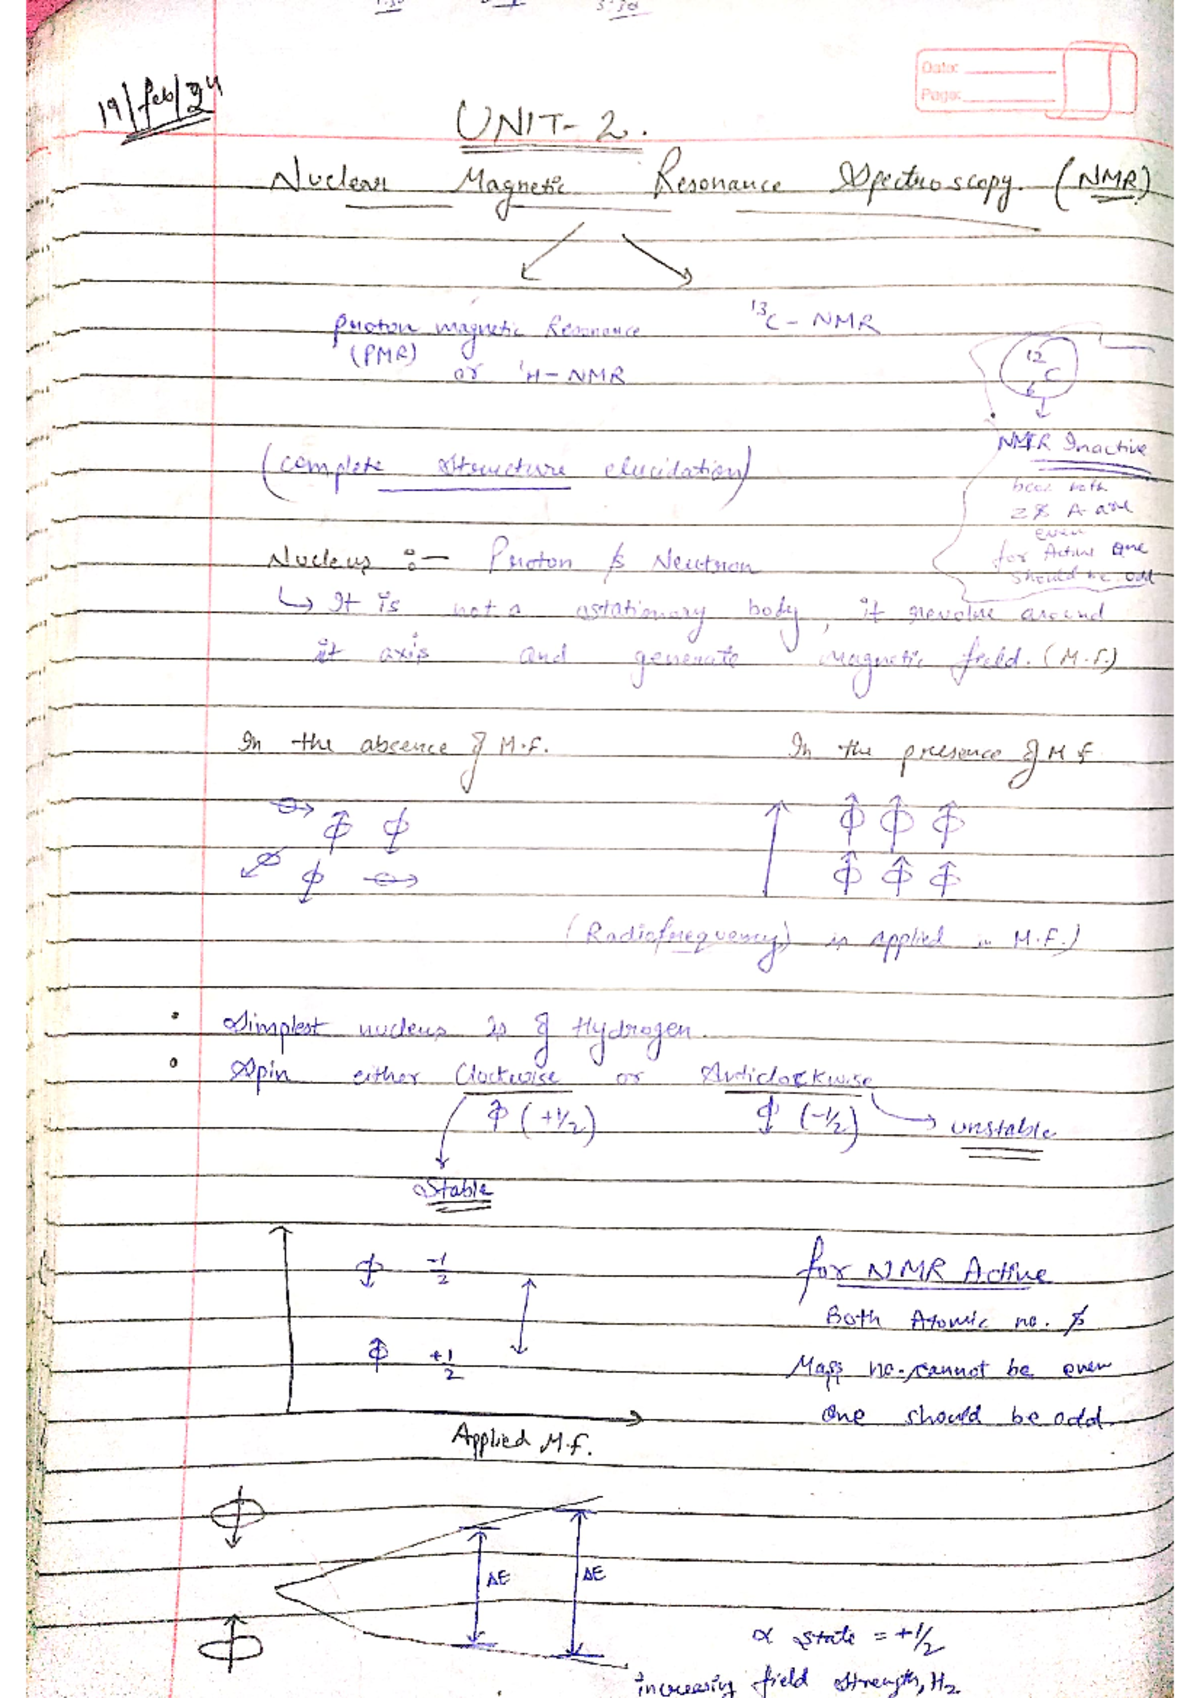 19/feb/24
Date:
Page:
UNIT-2.
Nuclear Magnetic Resonance Spectroscopy. (NMR)
proton magnetic Resonance
(PMR)
or ¹H-NMR
¹³C-NMR
¹²₆C
NMR Inactive
both
Z & A are
even
for Active One
should be odd
(complete structure elucidation)
Nucleus :- Proton & Neutron
↳ It is not a stationary body, it revolve around
it axis and generate magnetic field. (M.F.)
In the absence of M.F.
In the presence of M.F
(Radiofrequency) is applied in M.F.)
• Simplest nucleus is of Hydrogen.
• Spin either Clockwise or Anticlockwise
(+1/2)
(-1/2) → unstable
Stable
-1/2
+1/2
Applied M.F.
for NMR Active
Both Atomic no. &
Mass no. cannot be even
One should be odd.
ΔE
ΔE
α state = +1/2
increasing field strength, H₂